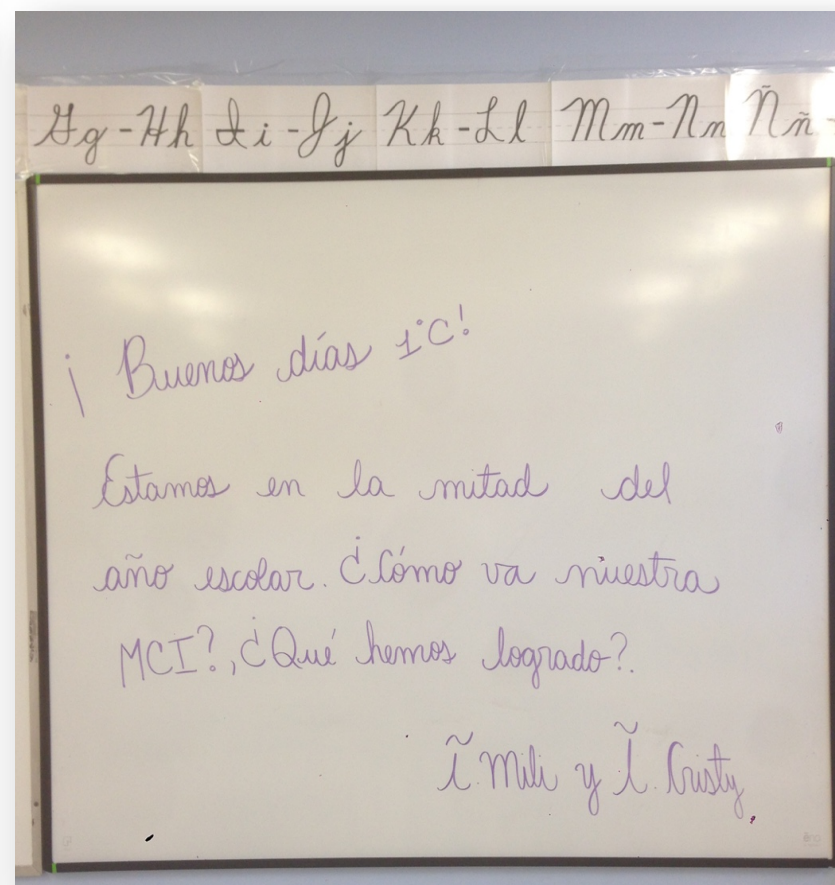 Gg - Hh Ii - Jj Kk - Ll Mm - Nn Ññ -
¡ Buenos días 1°C!
Estamos en la mitad del
año escolar. ¿Cómo va nuestra
MCI?, ¿Qué hemos logrado?.
Mili y Cristy.